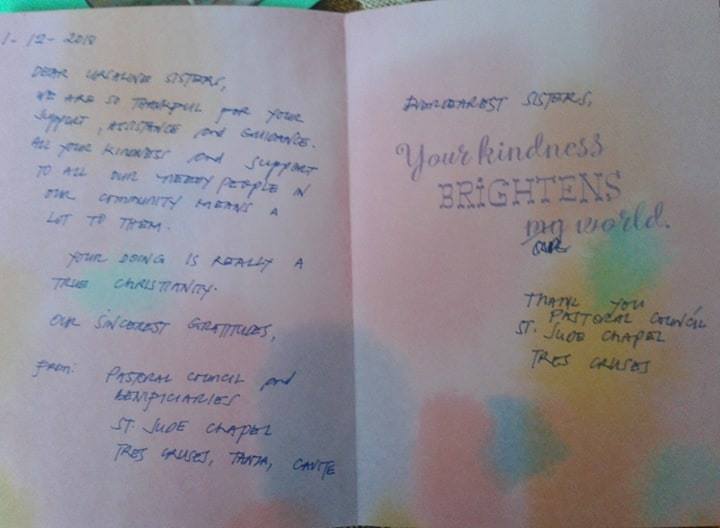 1-12-2018
DEAR URSALINE SISTERS,
WE ARE SO THANKFUL FOR YOUR
SUPPORT, ASSISTANCE and GUIDANCE.
ALL YOUR KINDNESS and SUPPORT
TO ALL OUR NEEDY PEOPLE IN
OUR COMMUNITY MEANS A
LOT TO THEM.
YOUR DOING IS REALLY A
TRUE CHRISTIANITY.
OUR SINCEREST GRATITUDES,
FROM: PASTORAL COUNCIL and
BENIFICIARIES
ST. JUDE CHAPEL
TRES CRUSES, TANZA, CAVITE
OUR DEAREST SISTERS,
Your kindness
BRIGHTENS
my world.
OUR
THANK YOU
PASTORAL COUNCIL
ST. JUDE CHAPEL
TRES CRUSES